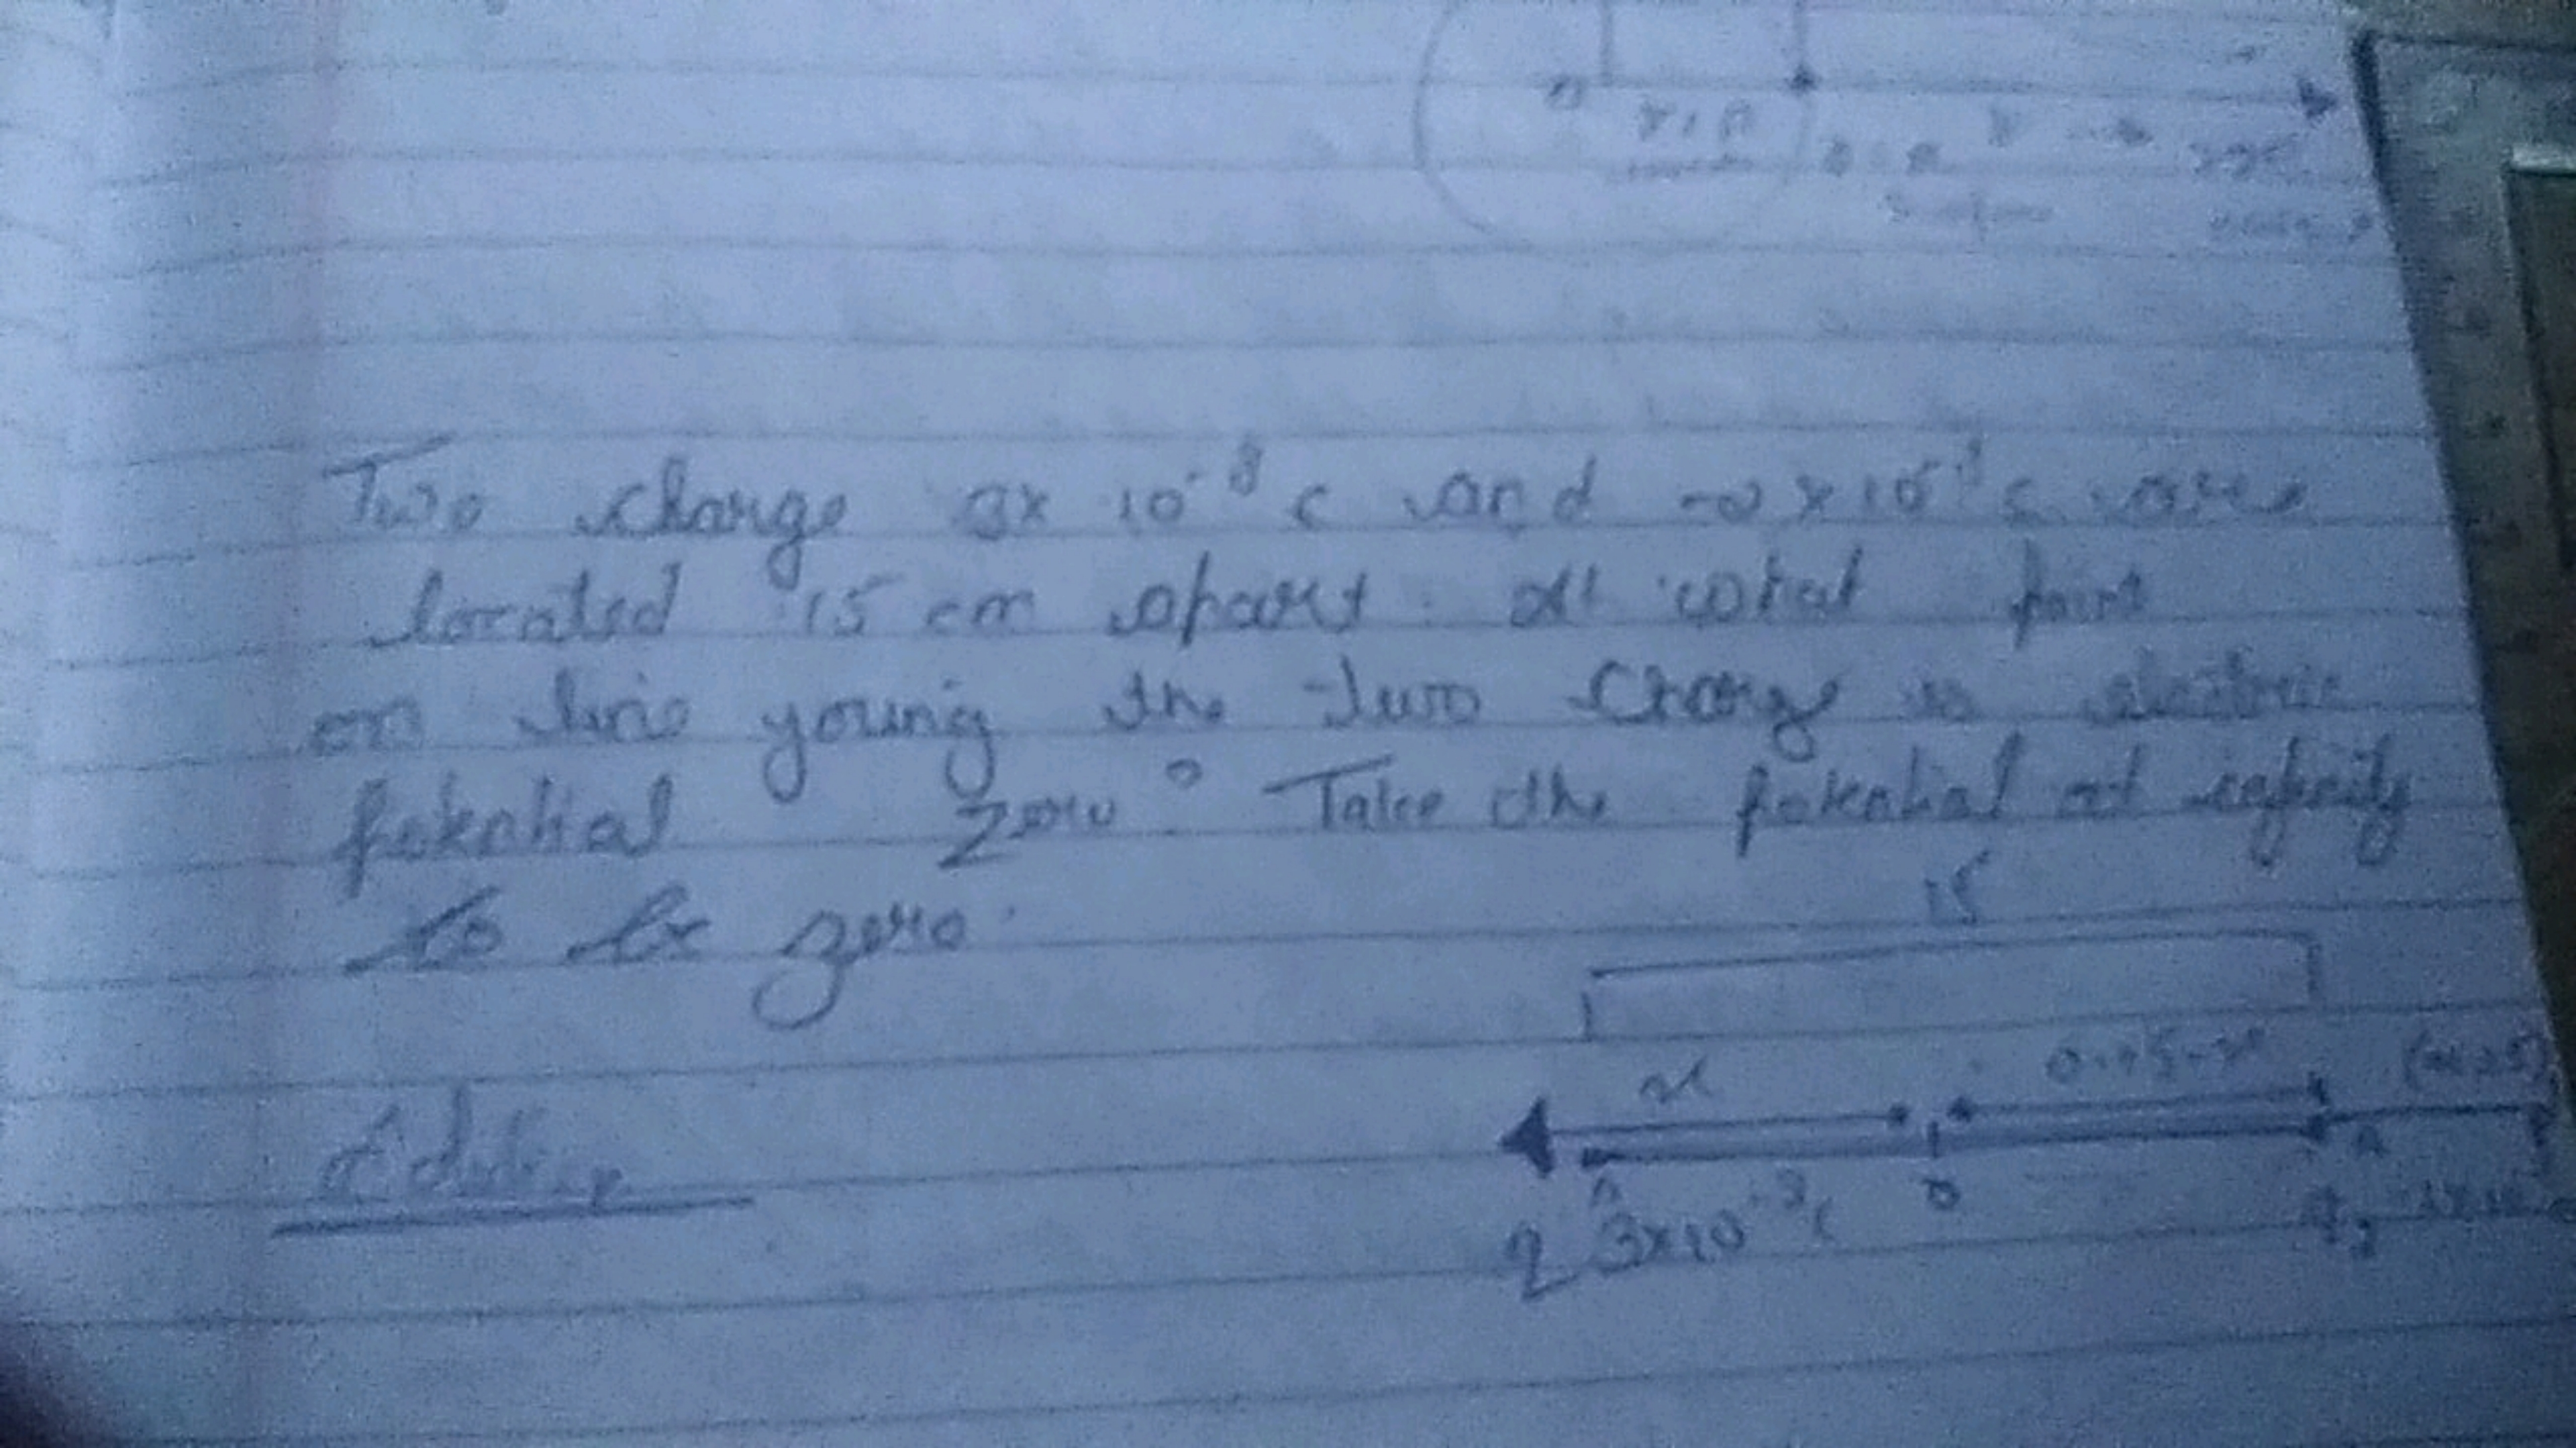 Two charge 3x 10⁻⁸ c and -2x10⁻⁸ c are
located 15 cm apart. at what point
on line yoning the two charge is electric
potential zero? Take the potential at infinity
to be zero.
15
x 0.15-x
A
3x10⁻⁸c